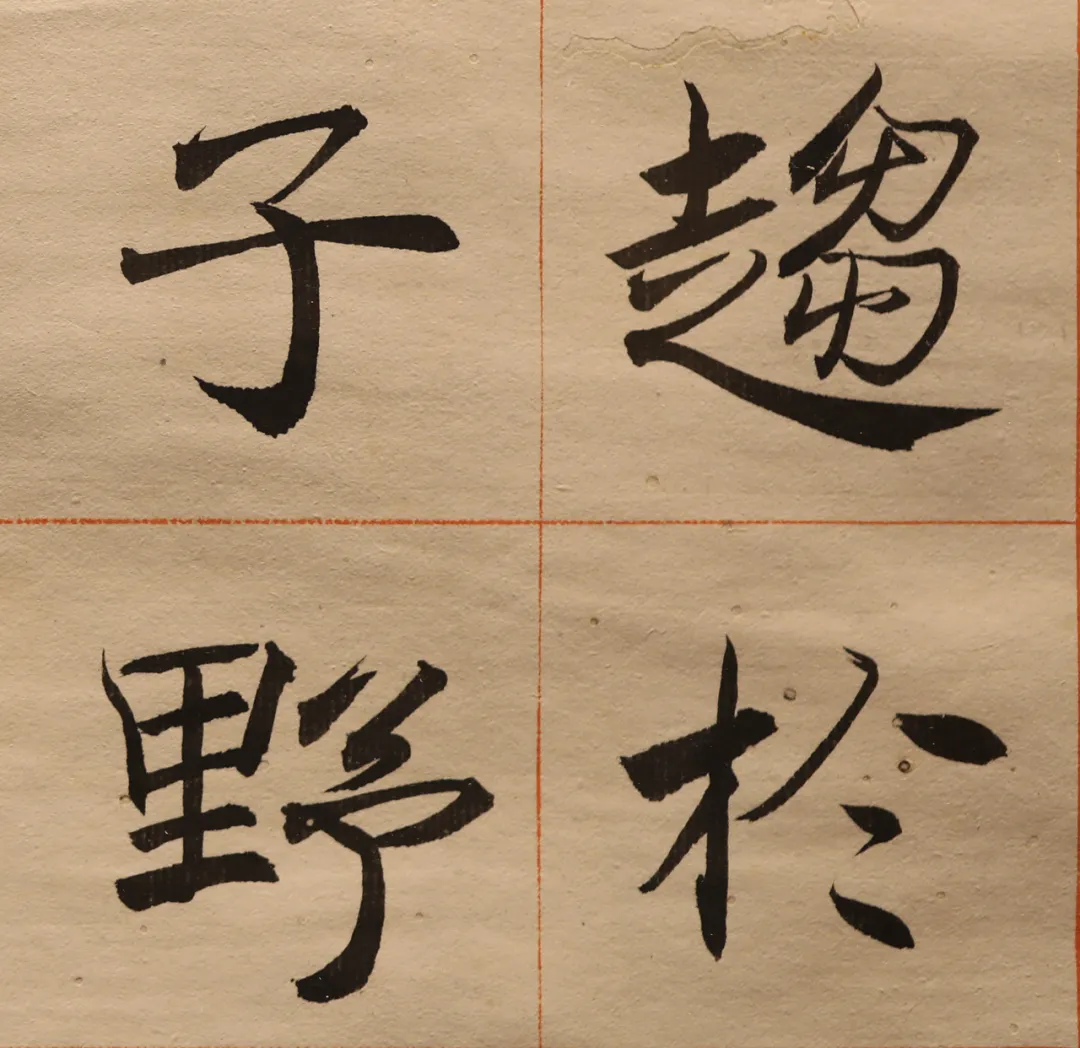 趨於
子野